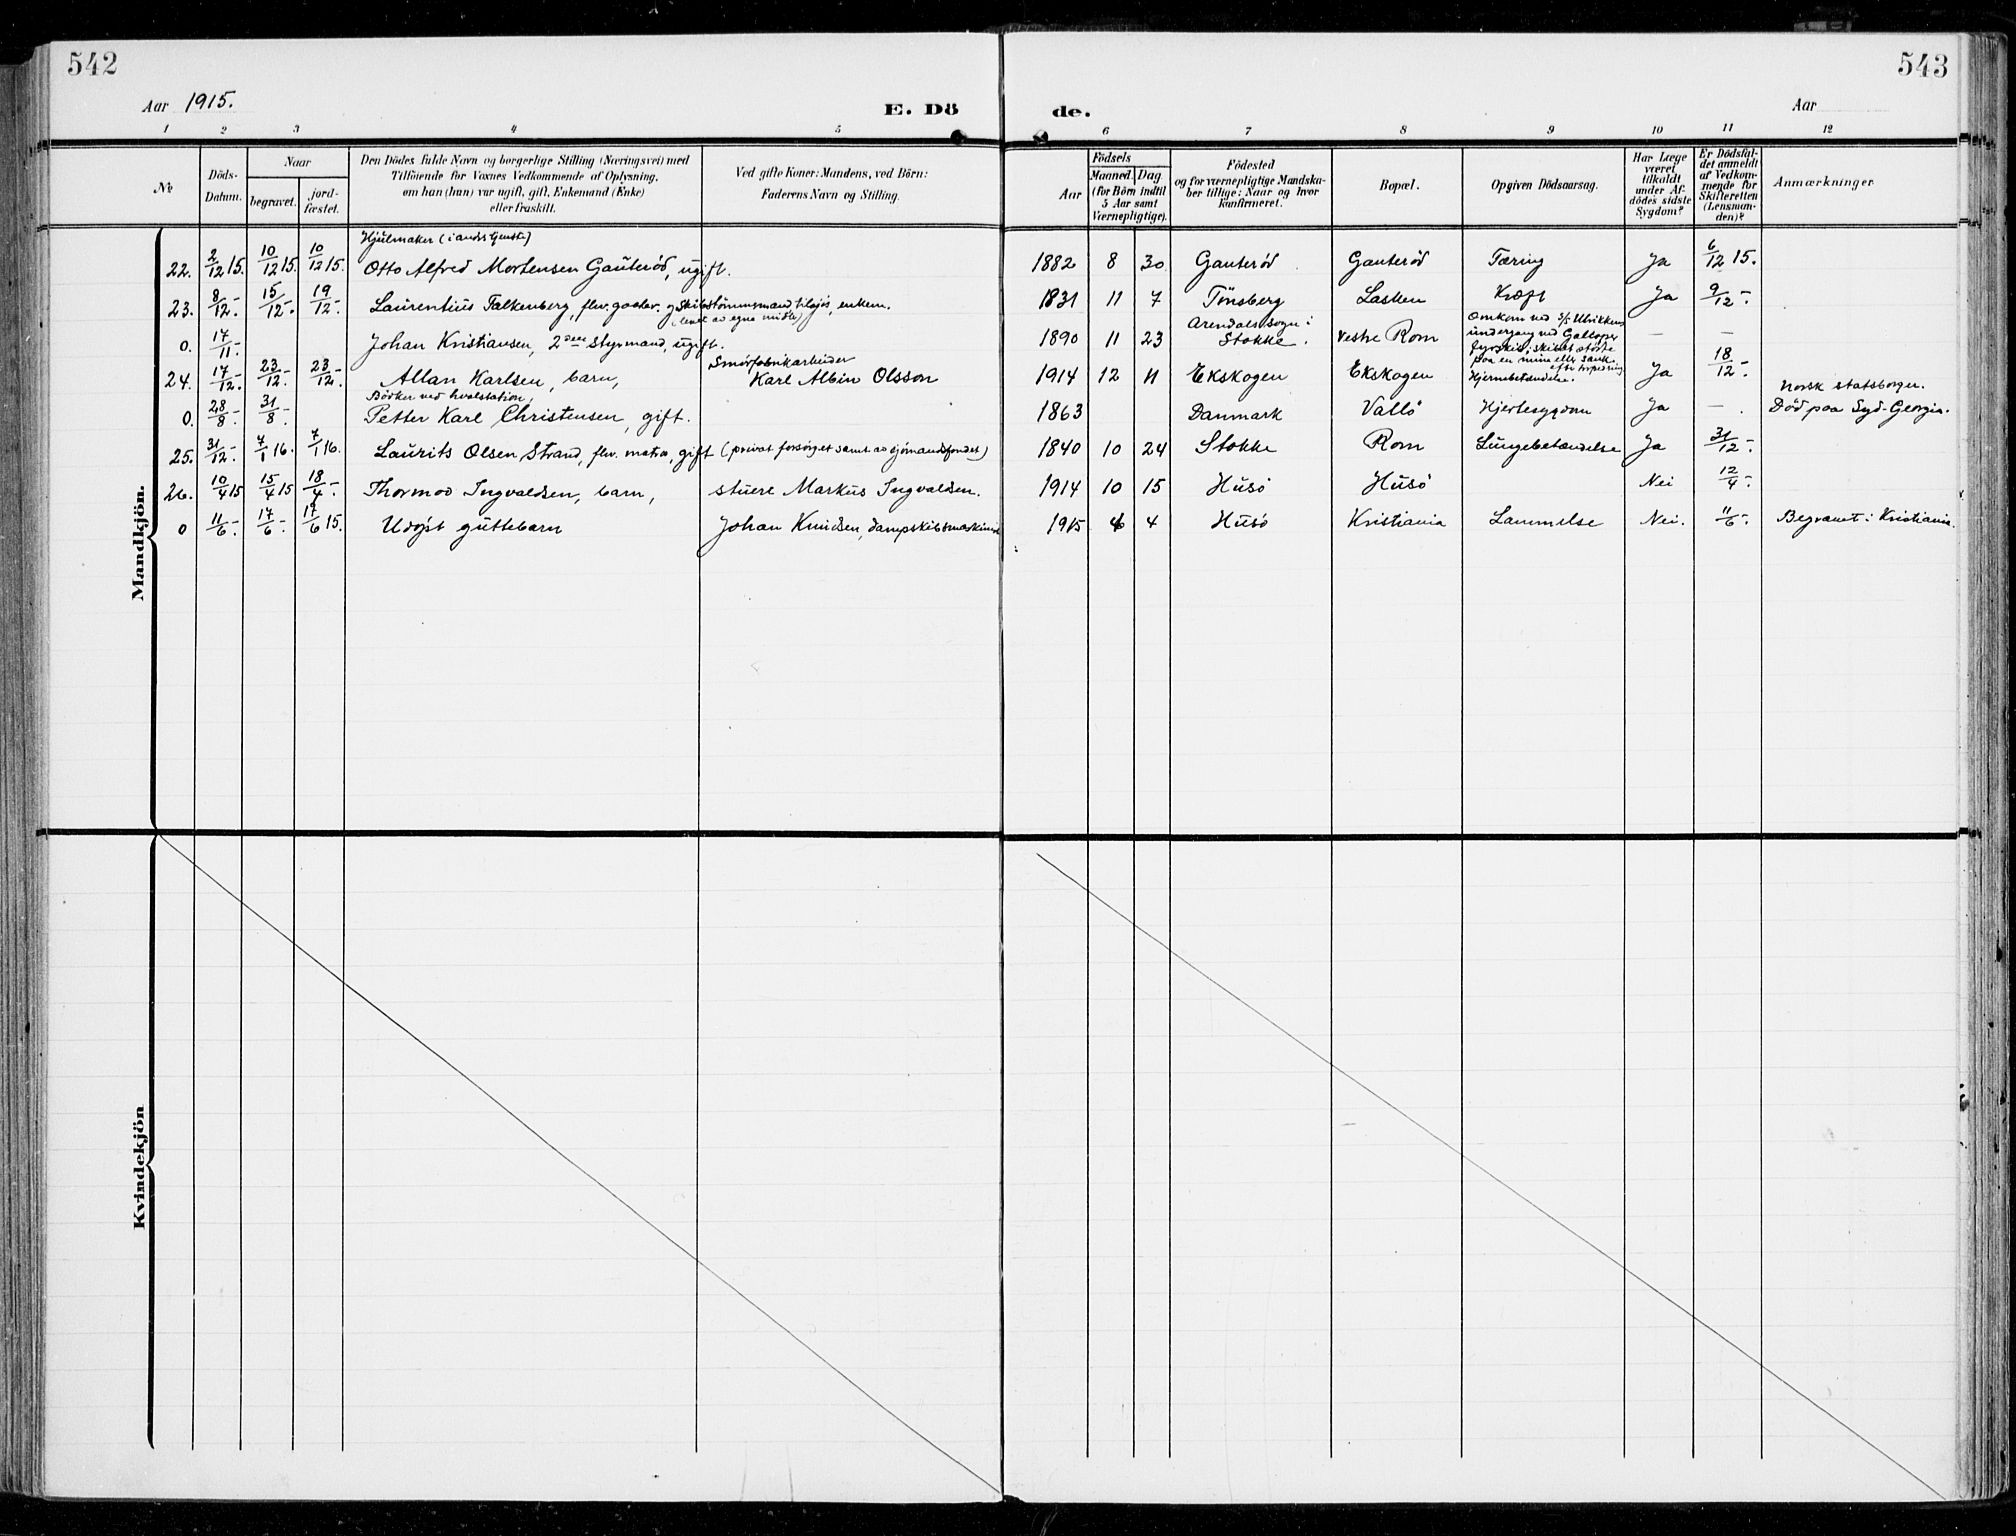 542
543
Aar 1915.
E. Dö
de.
Aar
1 2 3 4 5 6 7 8 9 10 11 12
No
Döds-Datum.
Naar
begravet.
jord-fæstet.
Den Dödes fulde Navn og borgerlige Stilling (Næringsvei) med
Tilföiende for Voxnes Vedkommende af Oplysning,
om han (hun) var ugift, gift, Enkemand (Enke)
eller fraskilt.
Ved gifte Koner: Mandens, ved Börn:
Faderens Navn og Stilling.
Födsels
Aar
Maaned. Dag
(for Börn indtil
5 Aar samt
Værnepligtige).
Födested
og for værnepligtige Mandska-
ber tillige: Naar og hvor
konfirmeret.
Bopæl.
Opgiven Dödsaarsag.
Har Læge
været
tilkaldt
under Af-
dödes sidste
Sygdom?
Er Dödsfal-
det anmeldt
af Vedkom-
mende for
Skifteretten
(Lensman-
den)?
Anmærkninger
Mandkjön.
Hjulmaker (i andrs tjeneste)
22. 2/12 15. 10/12 15. 10/12 15. Otto Alfred Mortensen Gauterød, ugift. 1882 8 30 Gauterød Gauterød Tæring Ja 6/12 15.
23. 8/12.- 15/12.- 19/12.- Laurentius Falkenberg, flev. gaardbr. og Skibstømmermand tilsjøs, enkem. 1831 11 7 Tönsberg Lasken Kræft Ja 9/12.-
(levet av egne midler)
0. 17/11.- Johan Kristiansen, 2den Styrmand, ugift. 1890 11 23 Arendals sogn i Stokke. Vestre Rom
Omkom ved S/S Ulrikkens
undergang ved Galloper
fyrskib; skibet stødte
paa en mine ell. sank
efter torpedering — —
24. 17/12.- 23/12.- 23/12.- Allan Karlsen, barn, Smörfabrikarbeider Karl Albin Olsson 1914 12 11 Ekskogen Ekskogen Hjernebetændelse. Ja 18/12.-
Bödker ved hvalstation,
0. 28/8.- 31/8.- Petter Karl Christensen, gift. 1863 Danmark Vallö Hjertesygdom Ja — . Norsk statsborger.
Död paa Syd-Georgia.
25. 31/12.- 7/1 16. 7/1 16. Laurits Olsen Strand, flev. matros, gift (privat forsörget samt av sjömandsfondet) 1840 10 24 Stokke Rom Lungebetændelse Ja 31/12.-
26. 10/4 15 15/4 15 18/4.- Thormod Ingvaldsen, barn, stuert Markus Ingvaldsen. 1914 10 15 Husö Husö Nei 12/4.-
0 11/6.- 17/6.- 17/6 15. Udöpt guttebarn Johan Knudsen, dampskibsmaskinist 1915 6 4 Husö Kristiania Lammelse Nei. 11/6.- Begravet i Kristiania.
Kvindekjön